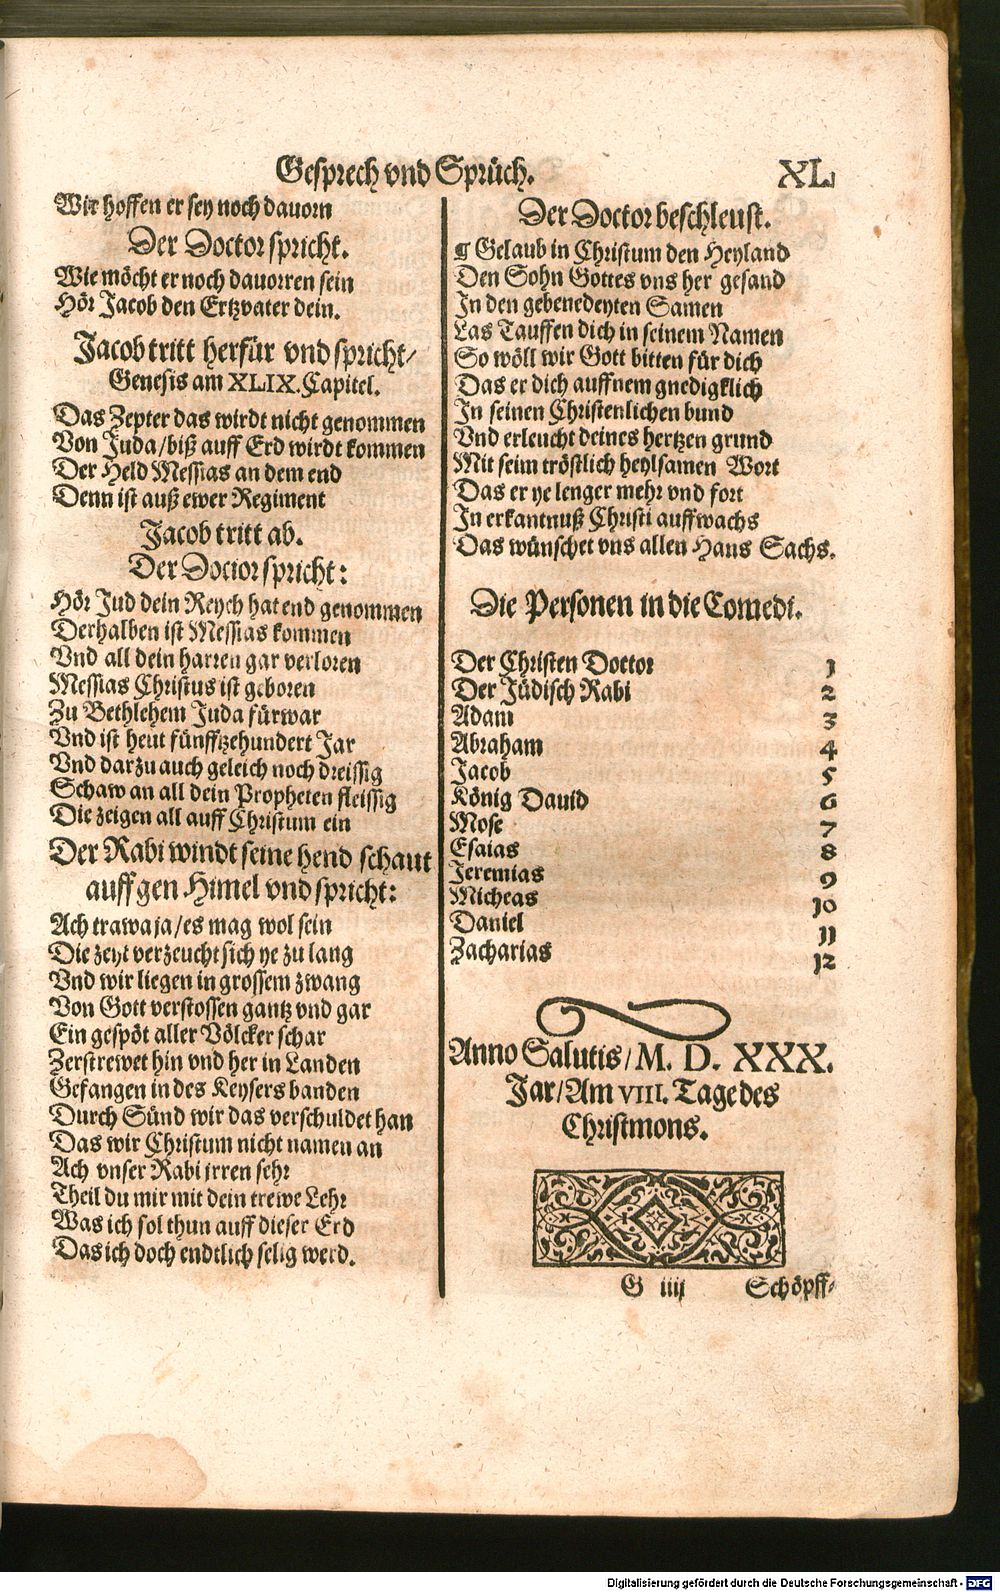 Gesprech vnd Sprüch.
XL
Wir hoffen er sey noch dauorn
Der Doctor spricht.
Wie möcht er noch dauorren sein
Hör Jacob den Ertzvater dein.
Jacob tritt herfür vnd spricht/
Genesis am XLIX. Capitel.
Das Zepter das wirdt nicht genommen
Von Juda/biß auff Erd wirdt kommen
Der Held Messias an dem end
Denn ist auß ewer Regiment
Jacob tritt ab.
Der Docior spricht:
Hör Jud dein Reych hat end genommen
Derhalben ist Messias kommen
Vnd all dein harren gar verloren
Messias Christus ist geboren
Zu Bethlehem Juda fürwar
Vnd ist heut fünfftzehundert Jar
Vnd darzu auch geleich noch dreissig
Schaw an all dein Propheten fleissig
Die zeigen all auff Christum ein
Der Rabi windt seine hend schaut
auff gen Himel vnd spricht:
Ach trawa ja/es mag wol sein
Die zeyt verzeucht sich ye zu lang
Vnd wir liegen in grossem zwang
Von Gott verstossen gantz vnd gar
Ein gespöt aller Völcker schar
Zerstrewet hin vnd her in Landen
Gefangen in des Keysers banden
Durch Sünd wir das verschuldet han
Das wir Christum nicht namen an
Ach vnser Rabi jrren sehr
Theil du mir mit dein trewe Lehr
Was ich sol thun auff dieser Erd
Das ich doch endtlich selig werd.
Der Doctor beschleust.
¶ Gelaub in Christum den Heyland
Den Sohn Gottes vns her gesand
In den gebenedeyten Samen
Las Tauffen dich in seinem Namen
So wöll wir Gott bitten für dich
Das er dich auffnem gnedigklich
In seinen Christenlichen bund
Vnd erleucht deines hertzen grund
Mit seim tröstlich heylsamen Wort
Das er ye lenger mehr vnd fort
In erkantnuß Christi auffwachs
Das wünschet vns allen Hans Sachs.
Die Personen in die Comedi.
Der Christen Doctor 1
Der Jüdisch Rabi 2
Adam 3
Abraham 4
Jacob 5
König Dauid 6
Mose 7
Esaias 8
Jeremias 9
Micheas 10
Daniel 11
Zacharias 12
Anno Salutis/M. D. XXX.
Jar/Am VIII. Tage des
Christmons.
G iiij
Schöpff-
Digitalisierung gefördert durch die Deutsche Forschungsgemeinschaft - DFG